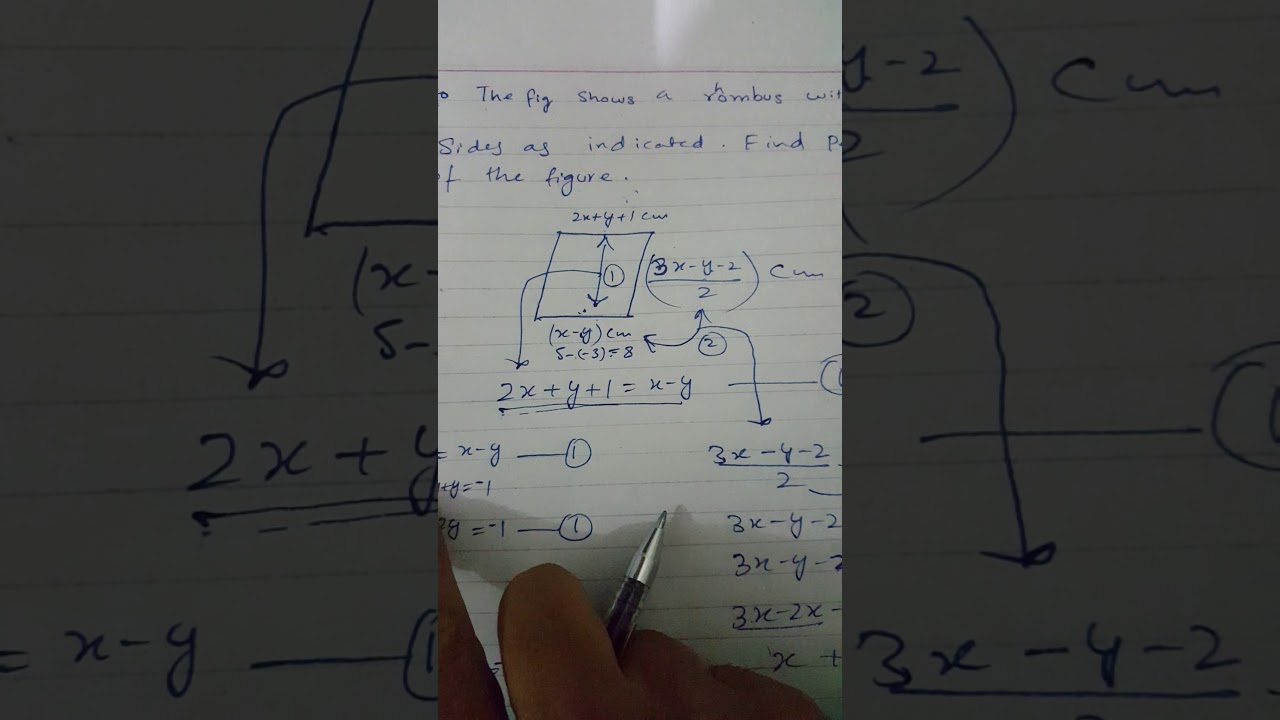 The fig shows a rhombus wit
Sides as indicated. Find P
f the figure.
2x+y+1 cm
①
(3x-y-2)/2 cm
(x-y) cm
5-(-3)=8
②
2x+y+1 = x-y
= x-y ①
+y=-1
2y =-1 ①
3x-y-2
2
3x-y-2
3x-y-2
3x-2x-
x +